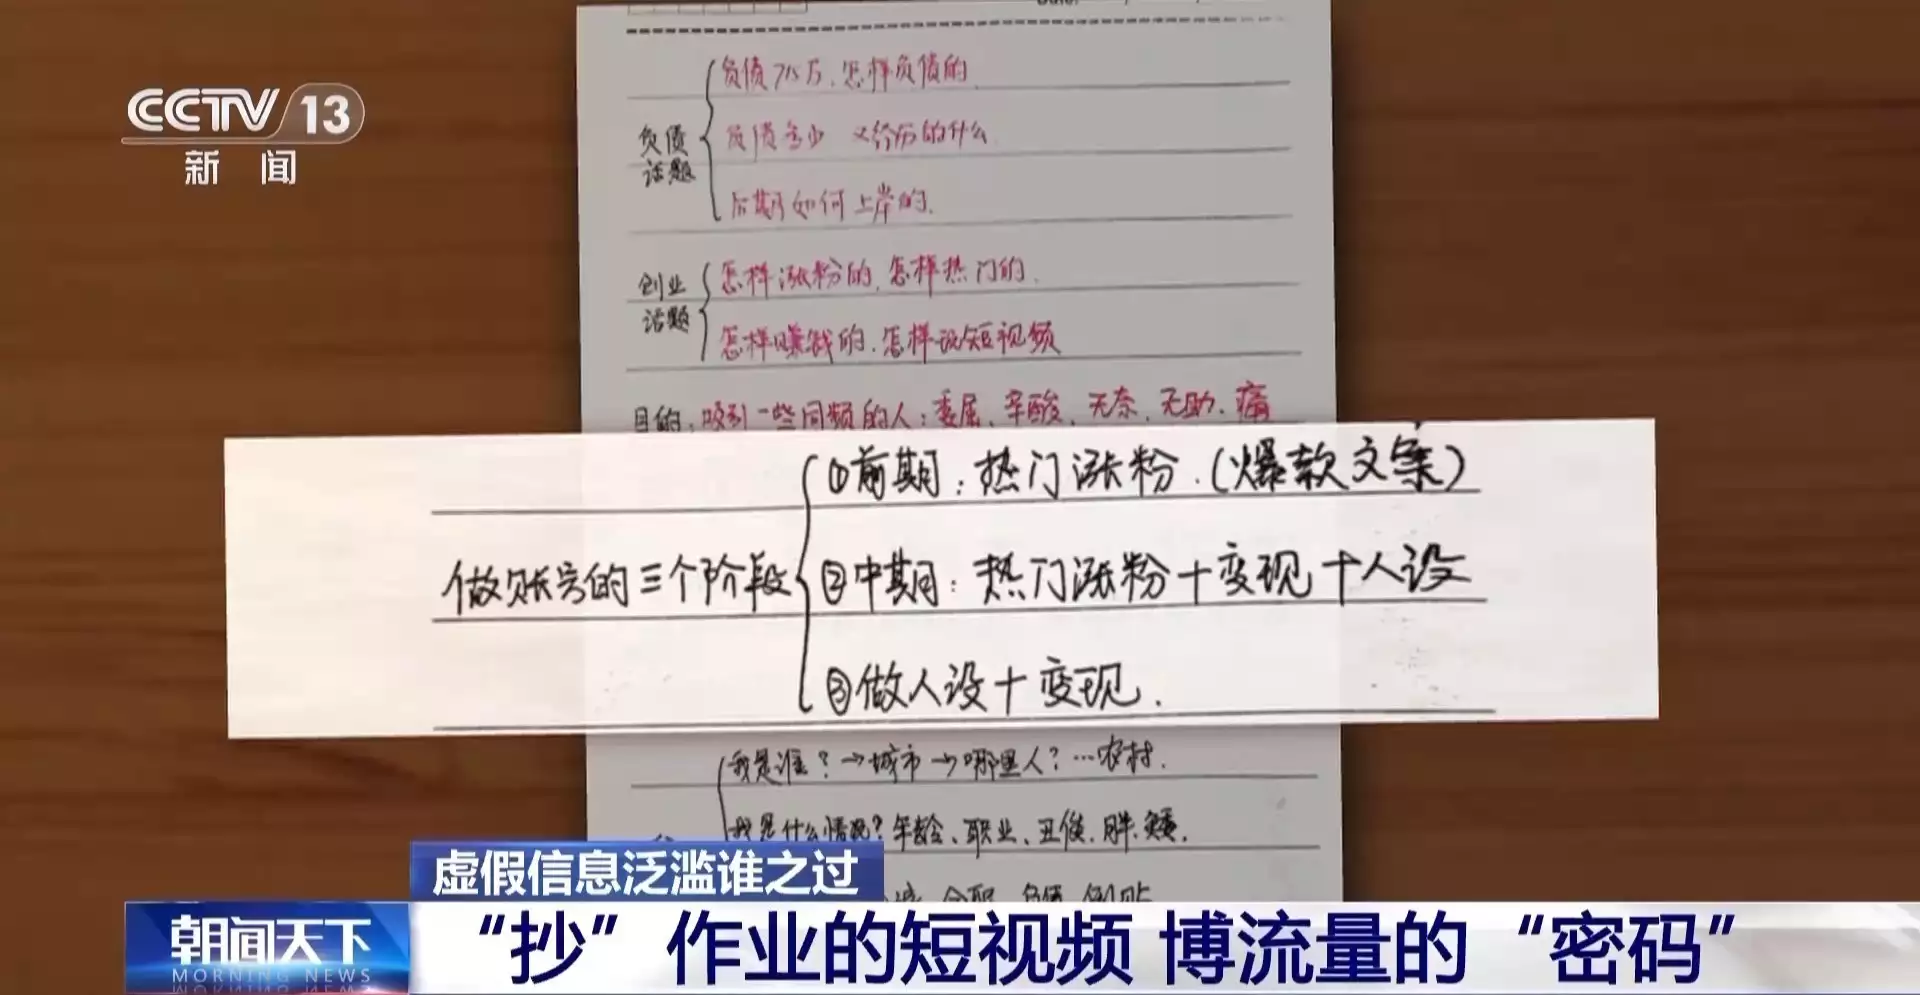 Date:
CCTV 13
新闻
负债话题
负债75万,怎样负债的
负债多少 又经历的什么
后期如何上岸的.
创业话题
怎样涨粉的,怎样热门的.
怎样赚钱的.怎样说短视频
目的:吸引一些同频的人:委屈、辛酸、无奈、无助、痛
做账号的三个阶段
①前期:热门涨粉.(爆款文案)
②中期:热门涨粉+变现+人设
③做人设+变现.
我是谁?→城市→哪里人?…农村.
我是什么情况?年龄、职业、丑俊.胖.矮.
虚假信息泛滥谁之过
朝闻天下
MORNING NEWS
“抄”作业的短视频 博流量的“密码”